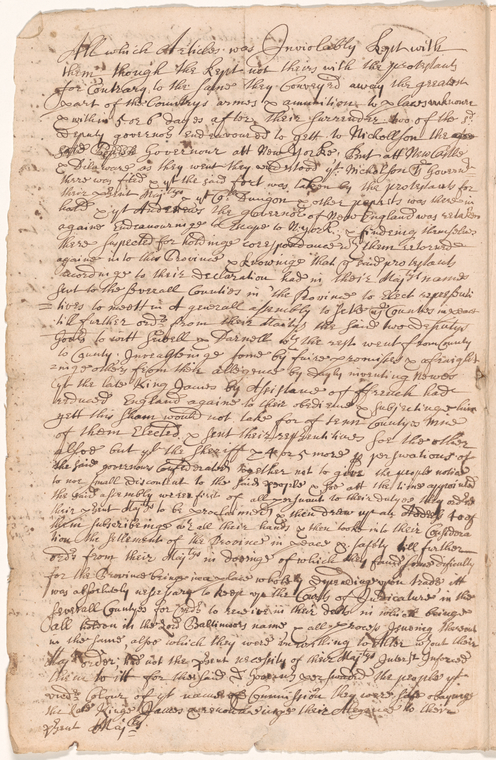 All which Articles was Inviolably Kept with
them though the Kept not theirs with the protestants
for Contrary to the same they Conveyed away the greatest
part of the Countrys armes & ammunition to places unknowne
& within 5 or 6 dayes after their Surrender two of the sd
deputy governors endeavoured to gett to Nicholson the
Governour att New Yorke, But att NewCastle
& Dilaware as they went they understood yt Nicholson ye Governr
there was fled & yt the said fort was taken by the protestants for
their prsent Majtys & yt Dungon & other papists was there in
hold & yt Andros the governor of New England was retaken
againe Endeavouringe to Escape to NYork, & findinge themselves
there suspected for holdinge correspondence wth them returned
againe into this Province & knowinge that ye said protestants
accordinge to their declaration had in their Majtys name
sent to the severall Counties in the Province to Elect representa
tives to meett in A generall assembly to settle ye Countrie in peace
till further ordr from their Majtys the said two deputy
Govrs to witt Sewell & Darnell wth the rest went from County
to County Inveaglinge some by faire promises & affright
inge others from their allegiance by dayly inventing Newes
yt the late King James by Assistance of ffrench had
reduced England againe to their obedience & Subjectinge him
yett this sham would not take for of tenn Countys Nine
of them Elected & sent their representatives for the other
alsoe but yt the Sheriff & 4 or 5 more by perswations of
the said governors Confederated together not to give the people notice
to noe small discontent to the said people & soe att the time appointed
the said assembly were first of all persuant to their duty
their prsent Majtys to be proclaimed & then drew up an Address
them subscribeinge all their hands & then tooke into their Considera
tion the settlement of the Province in peace & safety till further
ordr from their Majtys in doeinge of which they found some difficulty
for the Province beinge in a place wholely dependinge upon trade itt
was absolutely necessary to keep up the Courts of Judicature in the
severall Countyes for Credrs to receive in their debts in which beinge
all before in the Lord Baltimores name & all process issuing thereout
in the same alsoe which they were unwilling to Alter without their
Majtys order had not the prsent necessity of their Majtys Interest Inforced
them to itt for the said Governrs perswaded the people yt
under Colour of yt name & Commission they were safe obayinge
the late Kinge James & renounceinge their Alegience to their
prsent Majtys